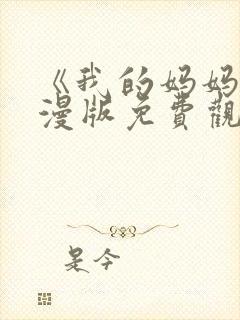 《我的妈妈
漫版免費觀
是今